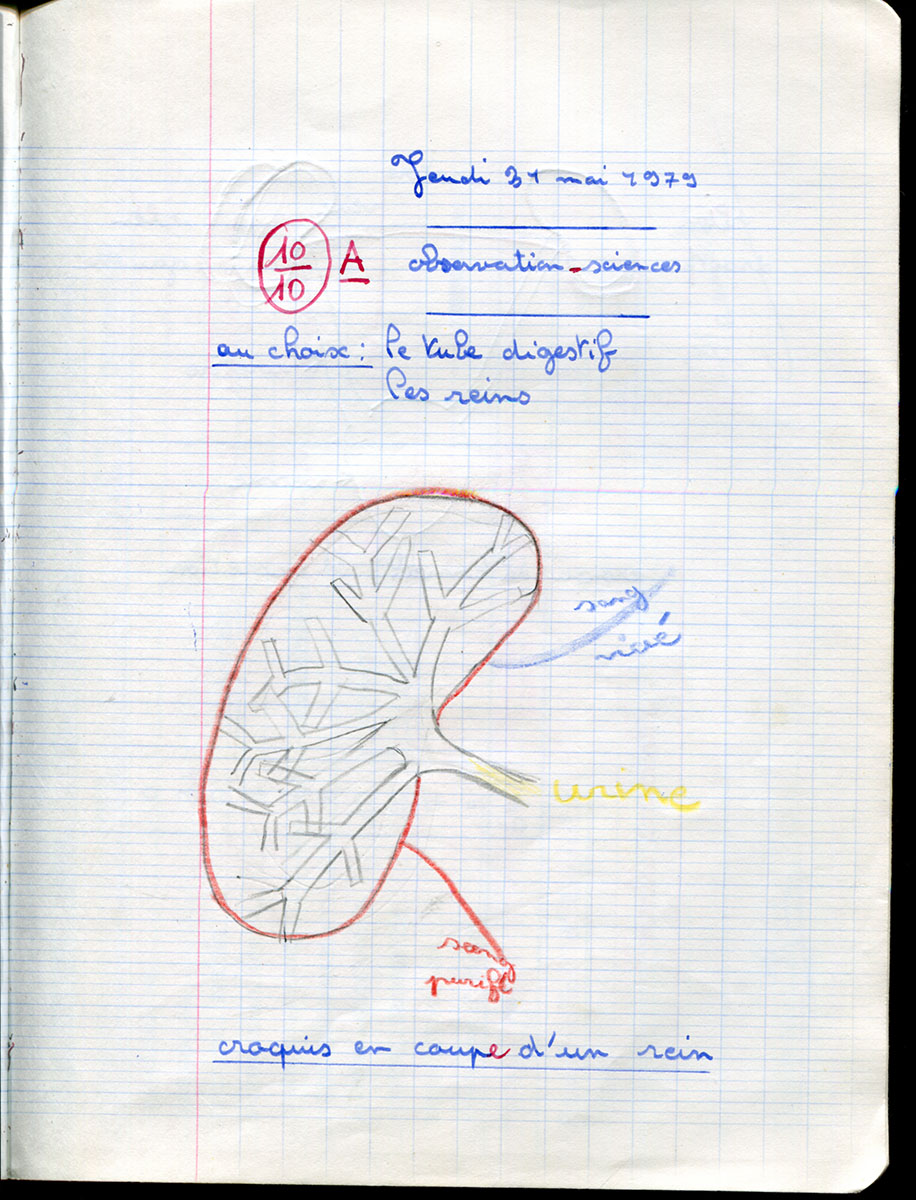 Jeudi 31 mai 1979
10
10
A
observation-sciences
au choix: le tube digestif
les reins
sang
vicié
urine
sang
purifé
croquis en coupe d'un rein